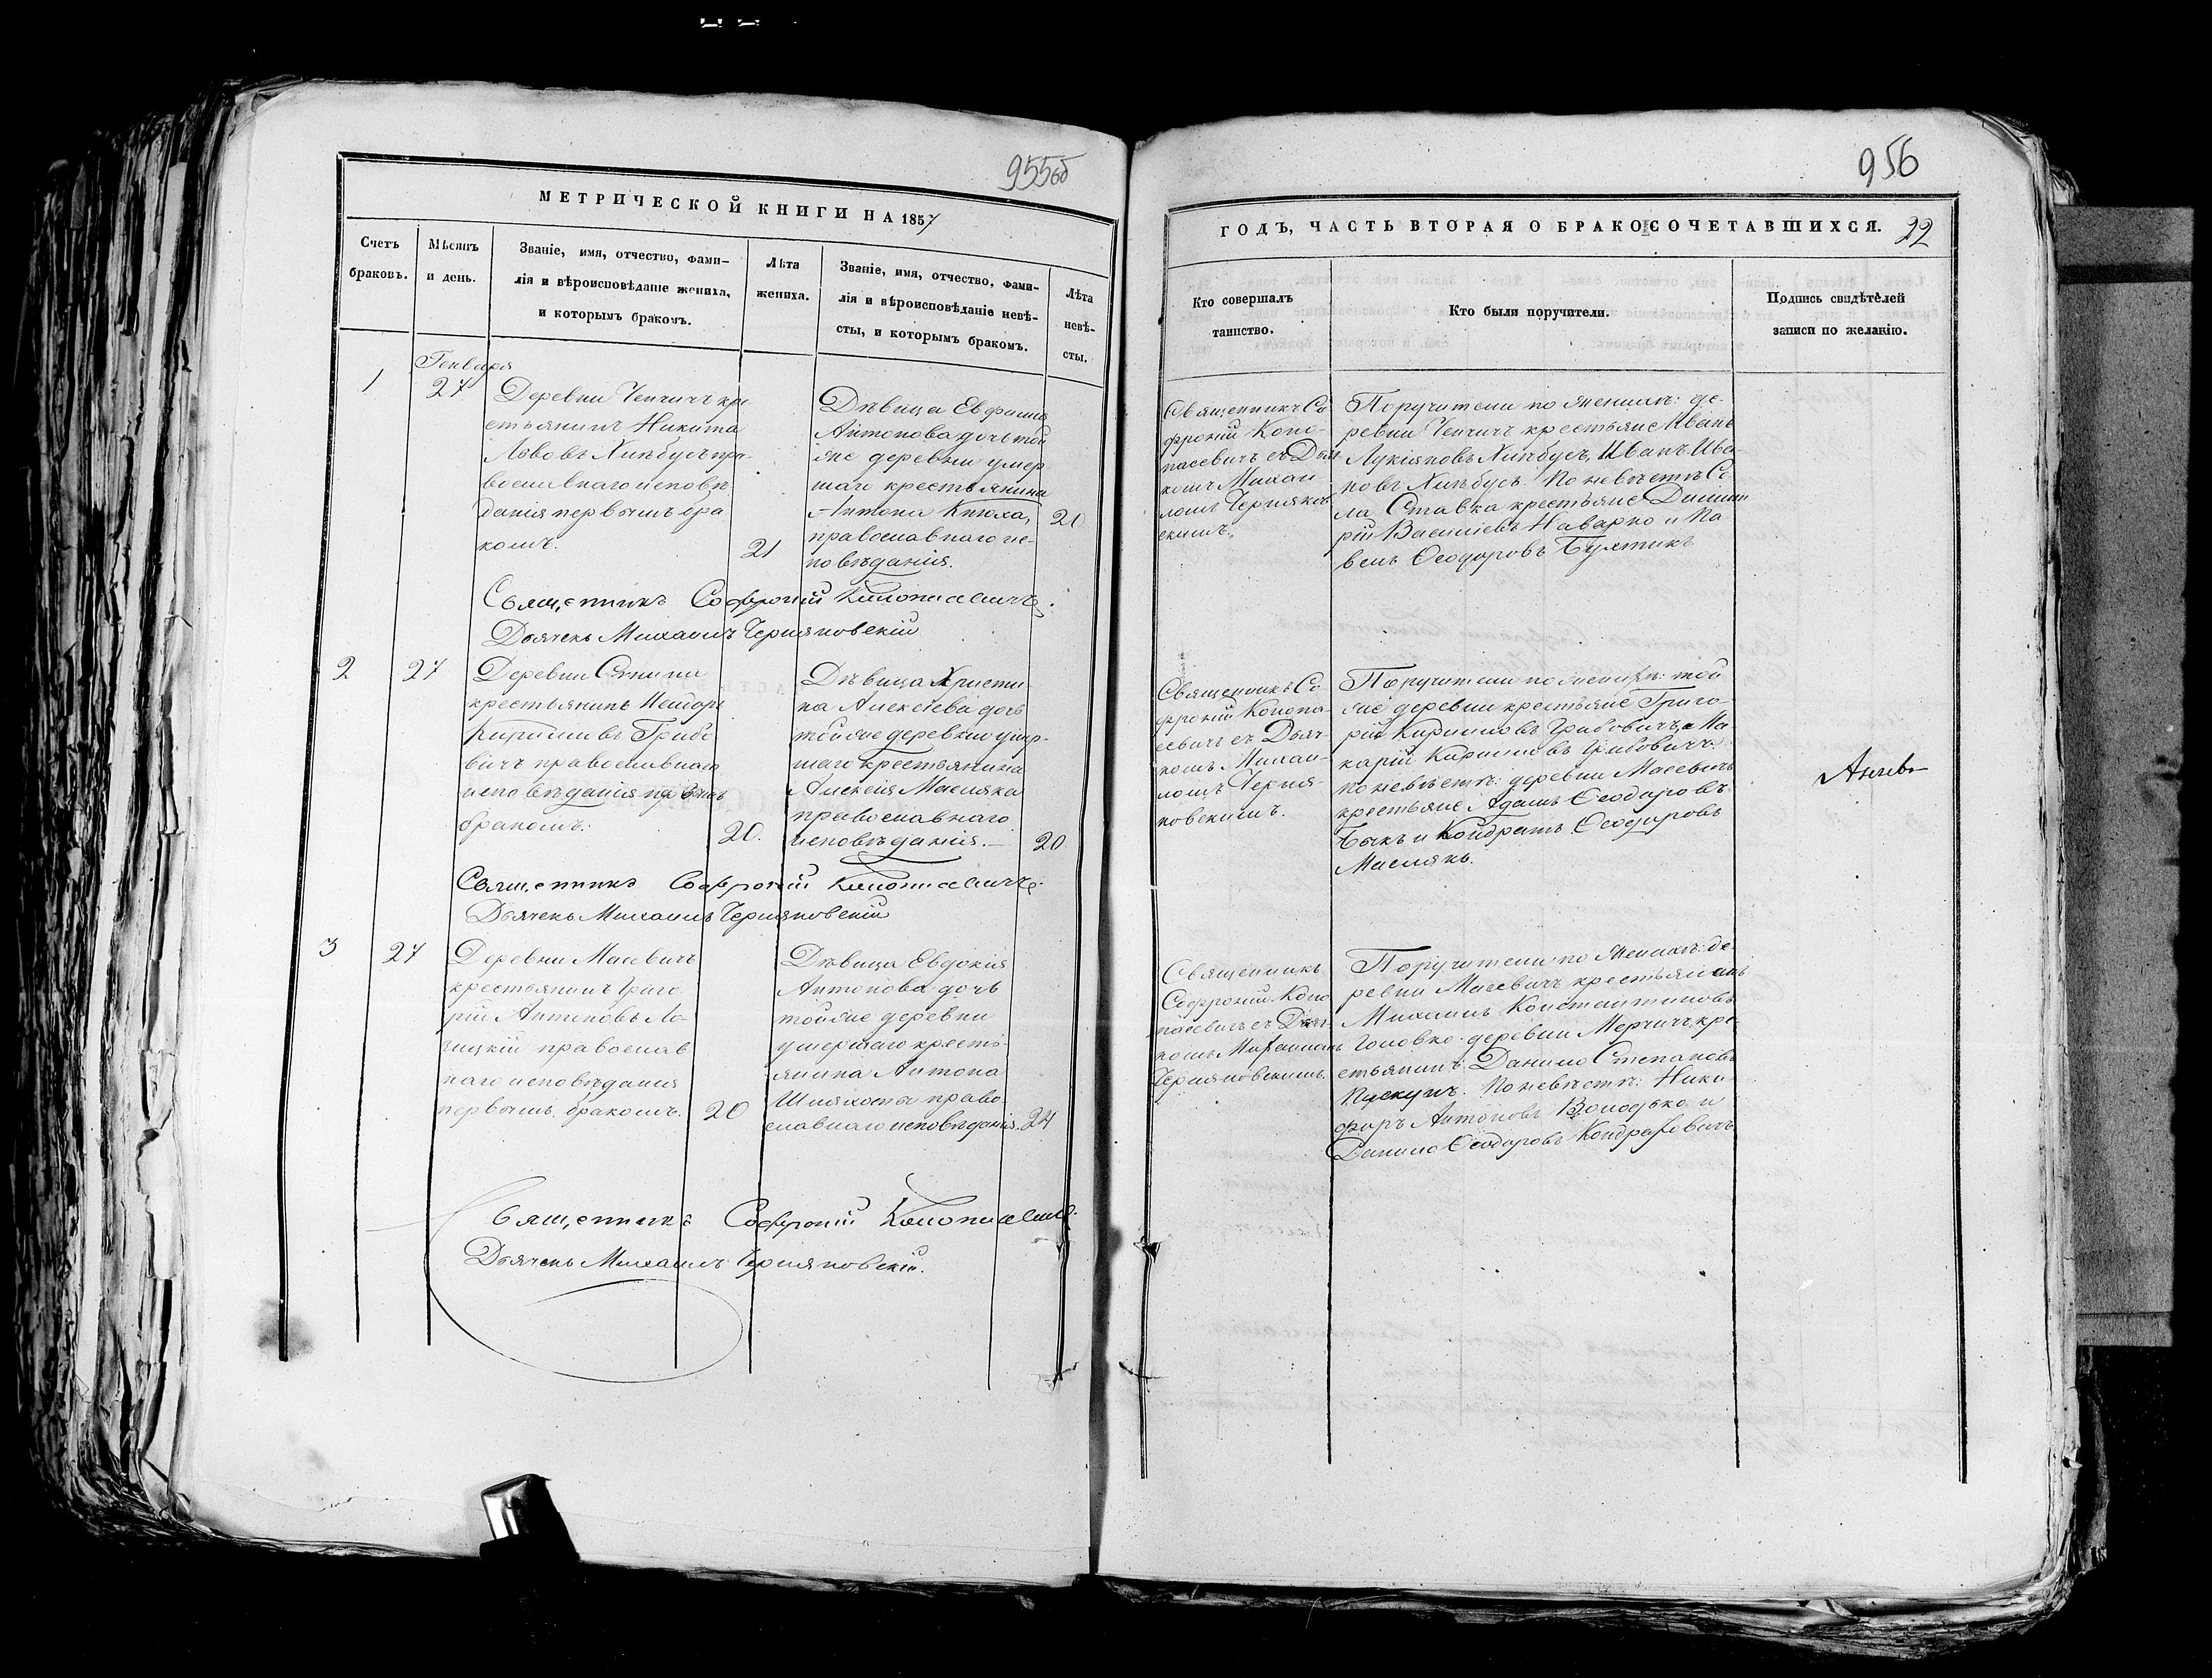 955об
МЕТРИЧЕСКОЙ КНИГИ НА 1857
Счетъ браковъ.
Мѣсяцъ и день.
Званіе, имя, отчество, фами-
лія и вѣроисповѣданіе жениха,
и которымъ бракомъ.
Лѣта жениха.
Званіе, имя, отчество, фами-
лія и вѣроисповѣданіе невѣ-
сты, и которымъ бракомъ.
Лѣта невѣ-
сты.
1
Генваря
27
Деревни Чепчичъ кре
стьянинъ Никита
Львовъ Хлѣбусъ пра-
вославнаго исповѣ
данія первымъ бра
комъ.
21
Дѣвица Евфимія
Антонова дочь той
же деревни умер
шаго крестьянина
Антона Кнюха,
православнаго ис-
повѣданія.
21
Священникъ Софроній Конопасевичъ.
Дьячекъ Михаилъ Черняковскій
2
27
Деревни
крестьянинъ Исидоръ
Кирилловъ Грибо
вичъ православнаго
исповѣданія первымъ
бракомъ.
20.
Дѣвица Христи-
на Алексѣева дочь
той же деревни умер-
шаго крестьянина
Алексія Масляка
православнаго
исповѣданія.—
20
Священникъ Софроній Конопасевичъ.
Дьячекъ Михаилъ Черняковскій
3
27
Деревни Масевичъ
крестьянинъ Григо
рій Антоновъ Ло-
гицкій православ
наго исповѣданія
первымъ бракомъ.
20
Дѣвица Евдокія
Антонова дочь
той же деревни
умершаго кресть-
янина Антона
Шляхота право
славнаго исповѣданія.
24
Священникъ Софроній Конопасевичъ.
Дьячекъ Михаилъ Черняковскій.
956
ГОДЪ, ЧАСТЬ ВТОРАЯ О БРАКОСОЧЕТАВШИХСЯ.
22
Кто совершалъ
таинство.
Кто были поручители.
Подпись свидѣтелей
записи по желанію.
Священникъ Со
фроній Коно-
пасевичъ съ Дьяч
комъ Михаи
ломъ Черняков
скимъ.
Поручители по женихѣ: де-
ревни Чепчичъ крестьяне Иванъ
Лукіяновъ Хлѣбусъ, Иванъ Ива-
новъ Хлѣбусъ. По невѣстѣ Се
ла Ставка крестьяне Димит
рій Васильевъ Наварко и Па
велъ Ѳеодоровъ
Священникъ Со
фроній Конопа-
севичъ съ Дьяч-
комъ Михаи-
ломъ Черня-
ковскимъ.
Поручители по женихѣ: той
же деревни крестьяне Григо-
рій Кирилловъ Грибовичъ, и Ма
карій Кирилловъ Грибовичъ.
по невѣстѣ: деревни Масевичъ
крестьяне Адамъ Ѳеодоровъ
Быкъ и Кондратъ Ѳеодоровъ
Маслякъ.
Священникъ
Софроній Коно
пасевичъ съ Дьяч-
комъ Михаиломъ
Черняковскимъ.
Поручители по женихѣ: де-
ревни Масевичъ крестьянинъ
Михаилъ Константиновъ
Головко. деревни Мерчичъ кре-
стьянинъ Данило Степановъ
По невѣстѣ: Ники
форъ Антоновъ Володько и
Данило Ѳеодоровъ Кондратовичъ